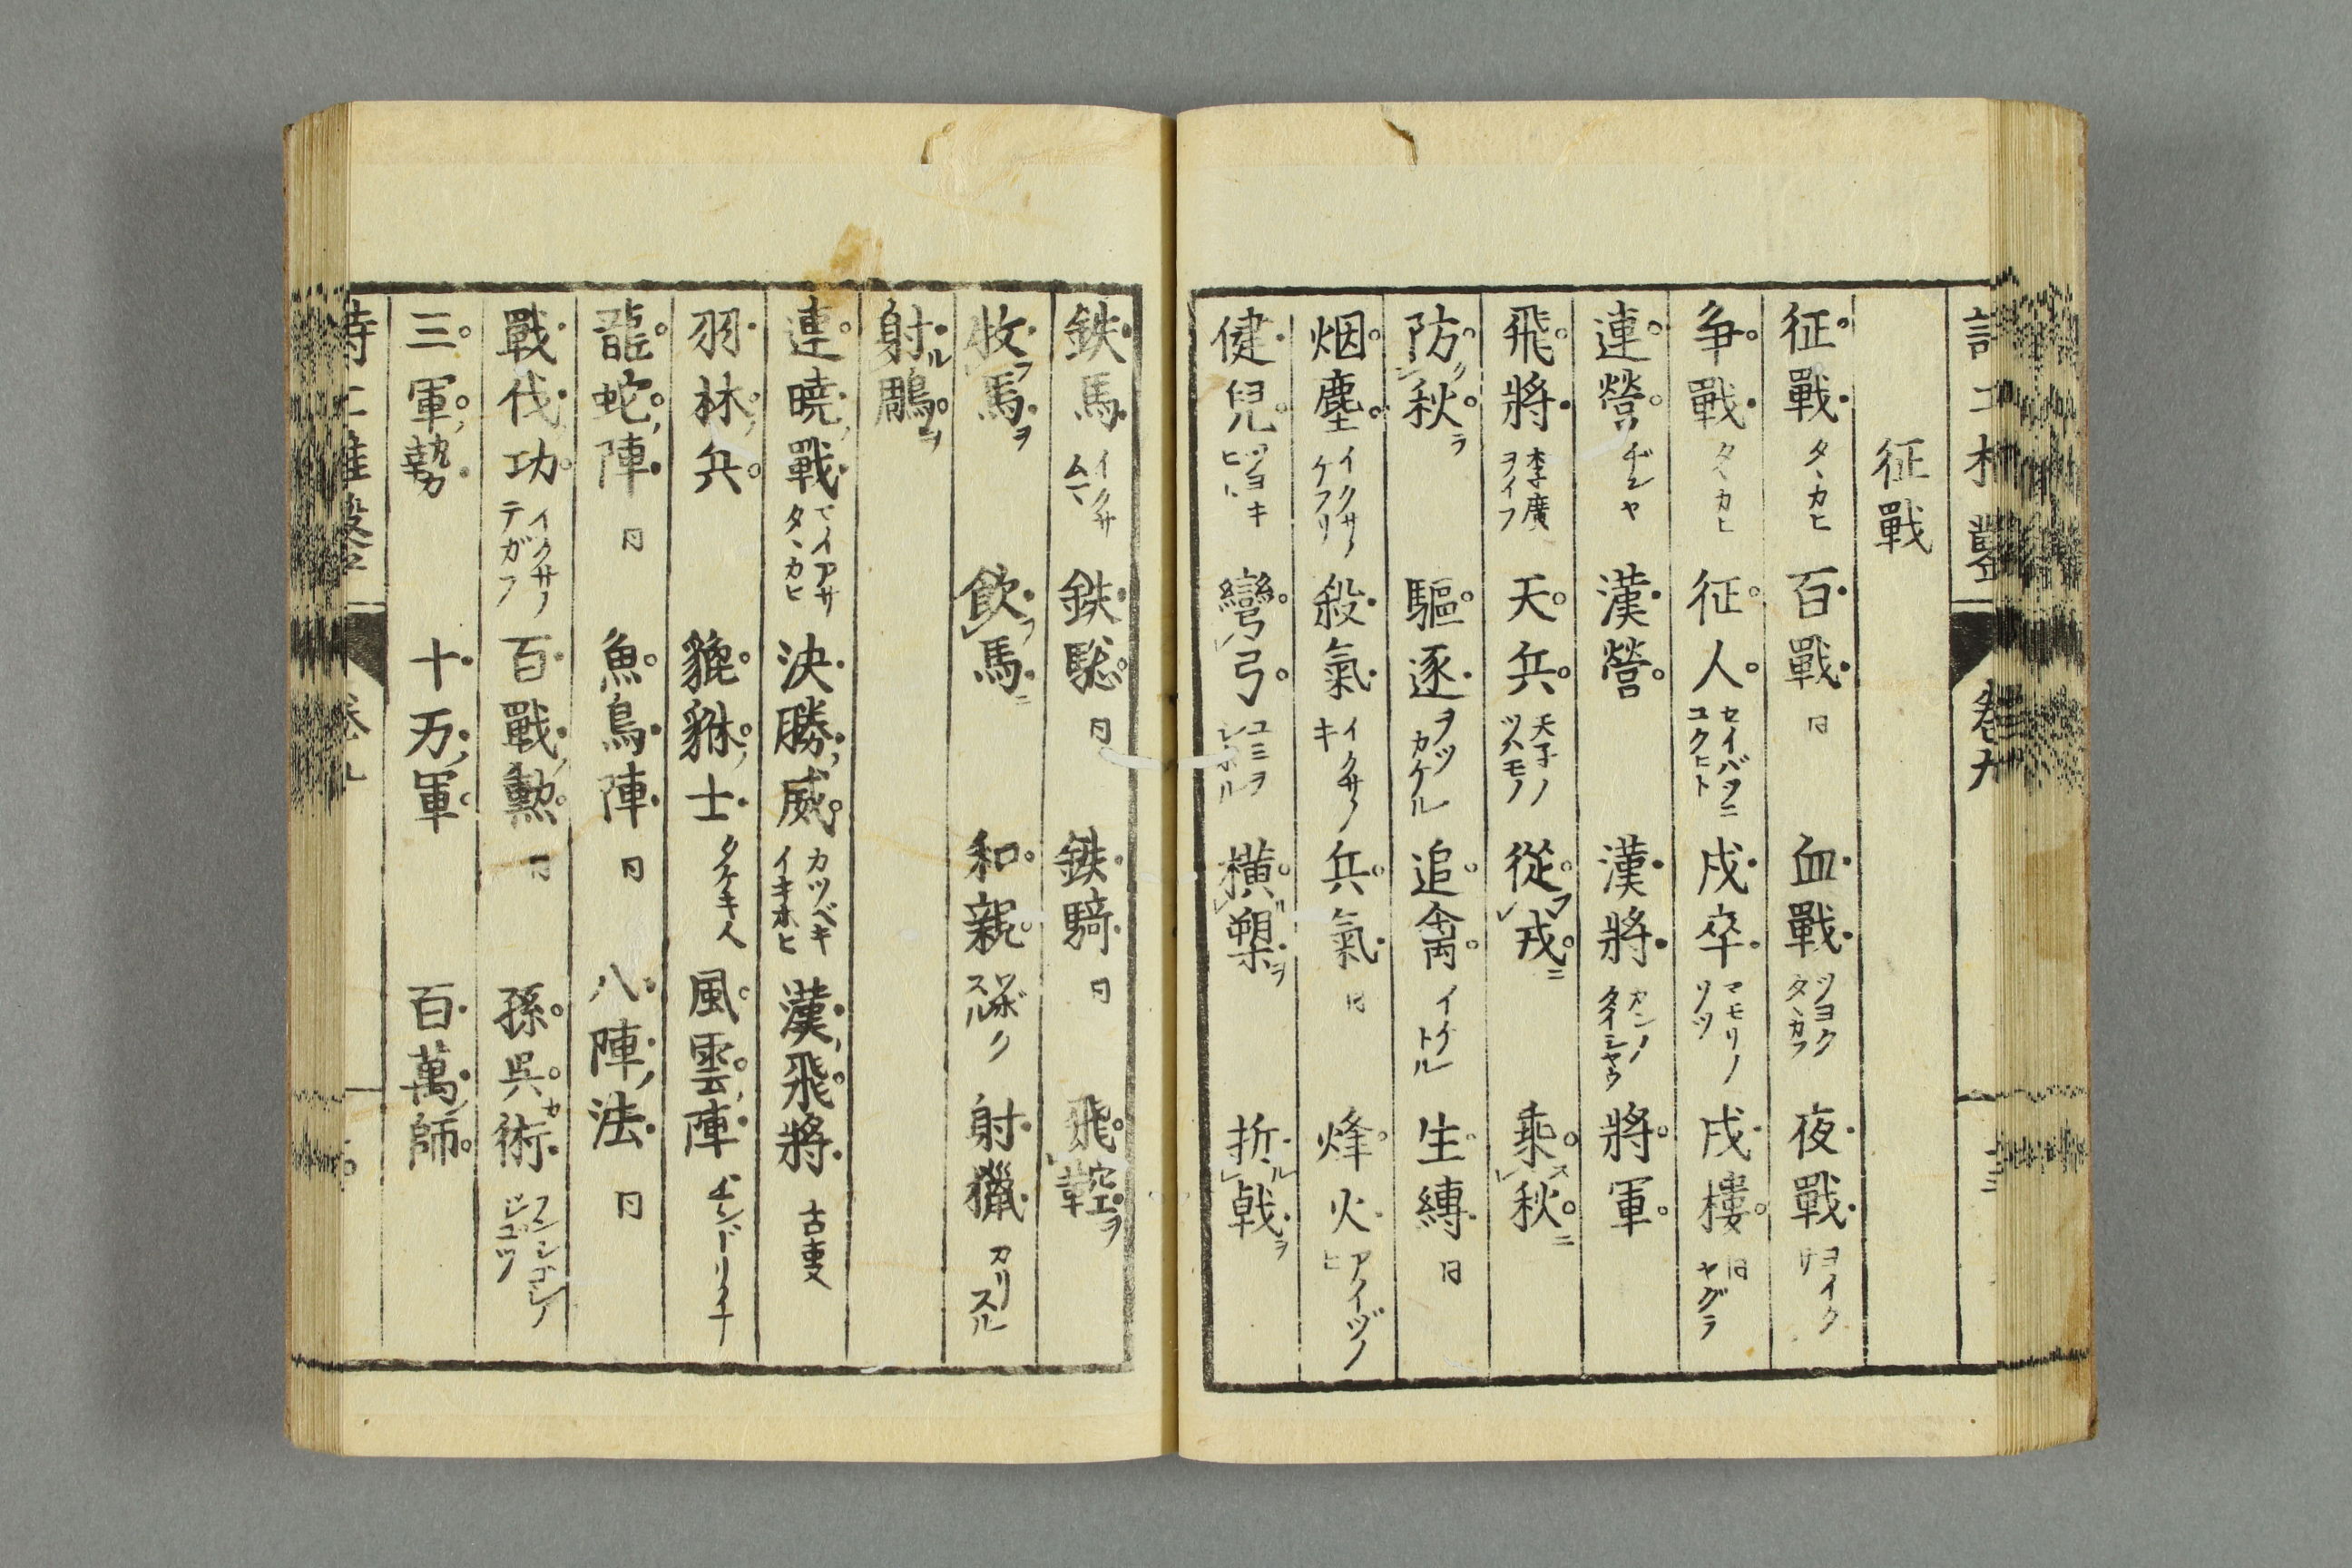 征戰
征戰 タヽカヒ 百戰 同 血戰 ツヨクタヽカフ 夜戰 ヨイクサ
争戰 タヽカヒ 征人 セイバツニユクヒト 戍卒 マモリノソツ 戍樓 同ヤグラ
連營 ヂンヤ 漢營 漢將 カンノタイシヤウ 將軍
飛將 李廣ヲイフ 天兵 天子ノツハモノ 從フレ戎ニ 乘スレ秋ニ
防クレ秋ヲ 驅逐 ヲツカケル 追禽 イケトル 生縛 同
烟塵 イクサノケフリ 殺氣 イクサノキ 兵氣 同 烽火 アイヅノヒ
健兒 ツヨキヒト 彎レ弓 ユミヲシホル 横レ槊ヲ 折ルレ戟ヲ
鉄馬 イクサムマ 鉄騘 同 鉄騎 同 飛レ鞚ヲ
牧フレ馬ヲ 飲フレ馬ニ 和親 スル 射獵 カリスル
射ル鵰ヲ
連暁戰 マイアサタヽカヒ 決勝威 カツベキイキホヒ 漢飛將 古事
羽林兵 貔貅士 タケキ人 風雲陣 ヂンドリノナ
龍蛇陣 同 魚鳥陣 同 八陣法 同
戰伐功 イクサノテガラ 百戰勲 同 孫呉術 ソンシゴシノジユツ
三軍勢 十万軍 百萬師
卷九